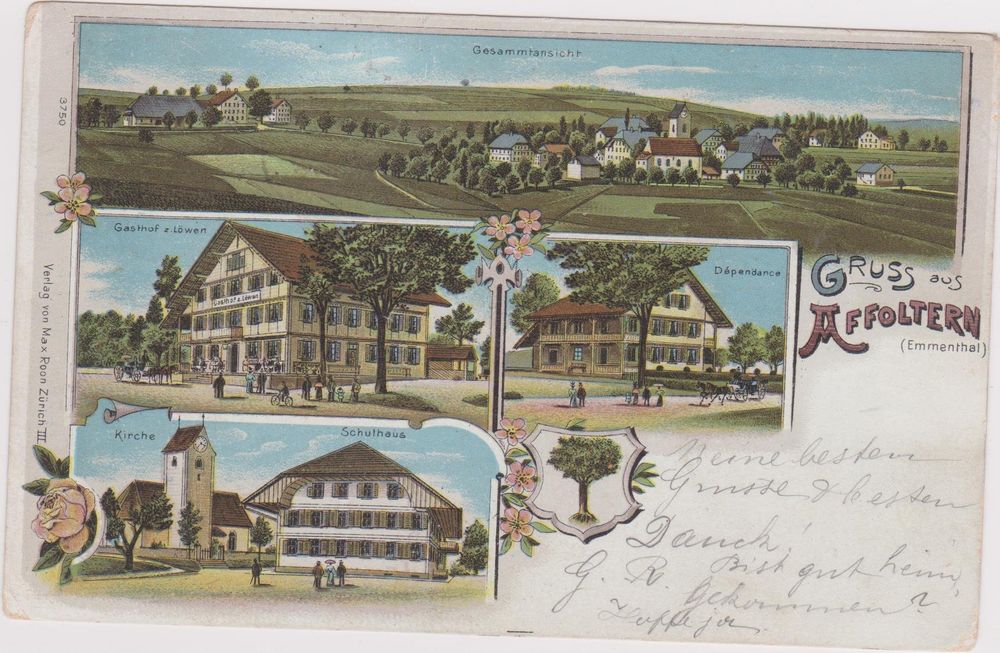 Gesammtansicht
3750
Gasthof z. Löwen
Gasthof z. Löwen
Dépendance
GRUSS aus
AFFOLTERN
(Emmenthal)
Verlag von Max Roon Zürich III
Kirche
Schulhaus
Meine besten
Grüsse & besten
Danck!
Bist gut heim
G. R. gekommen?
Hoffe ja.